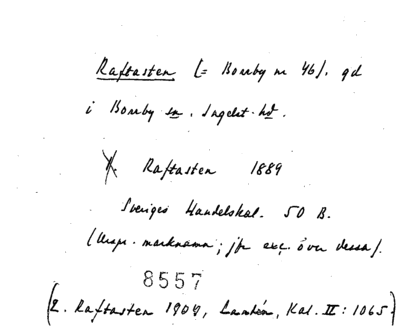 Raftasten (= Bomby nr 46). gd
i Bomby sn. Ingelst. hd.
1. Raftasten 1889
Sveriges Handelskal. 50 B.
(Urspr. marknamn; jfr exc. över dessa).
8557
(2. Raftasten 1909, Lamtén, Kal. II: 1065.)